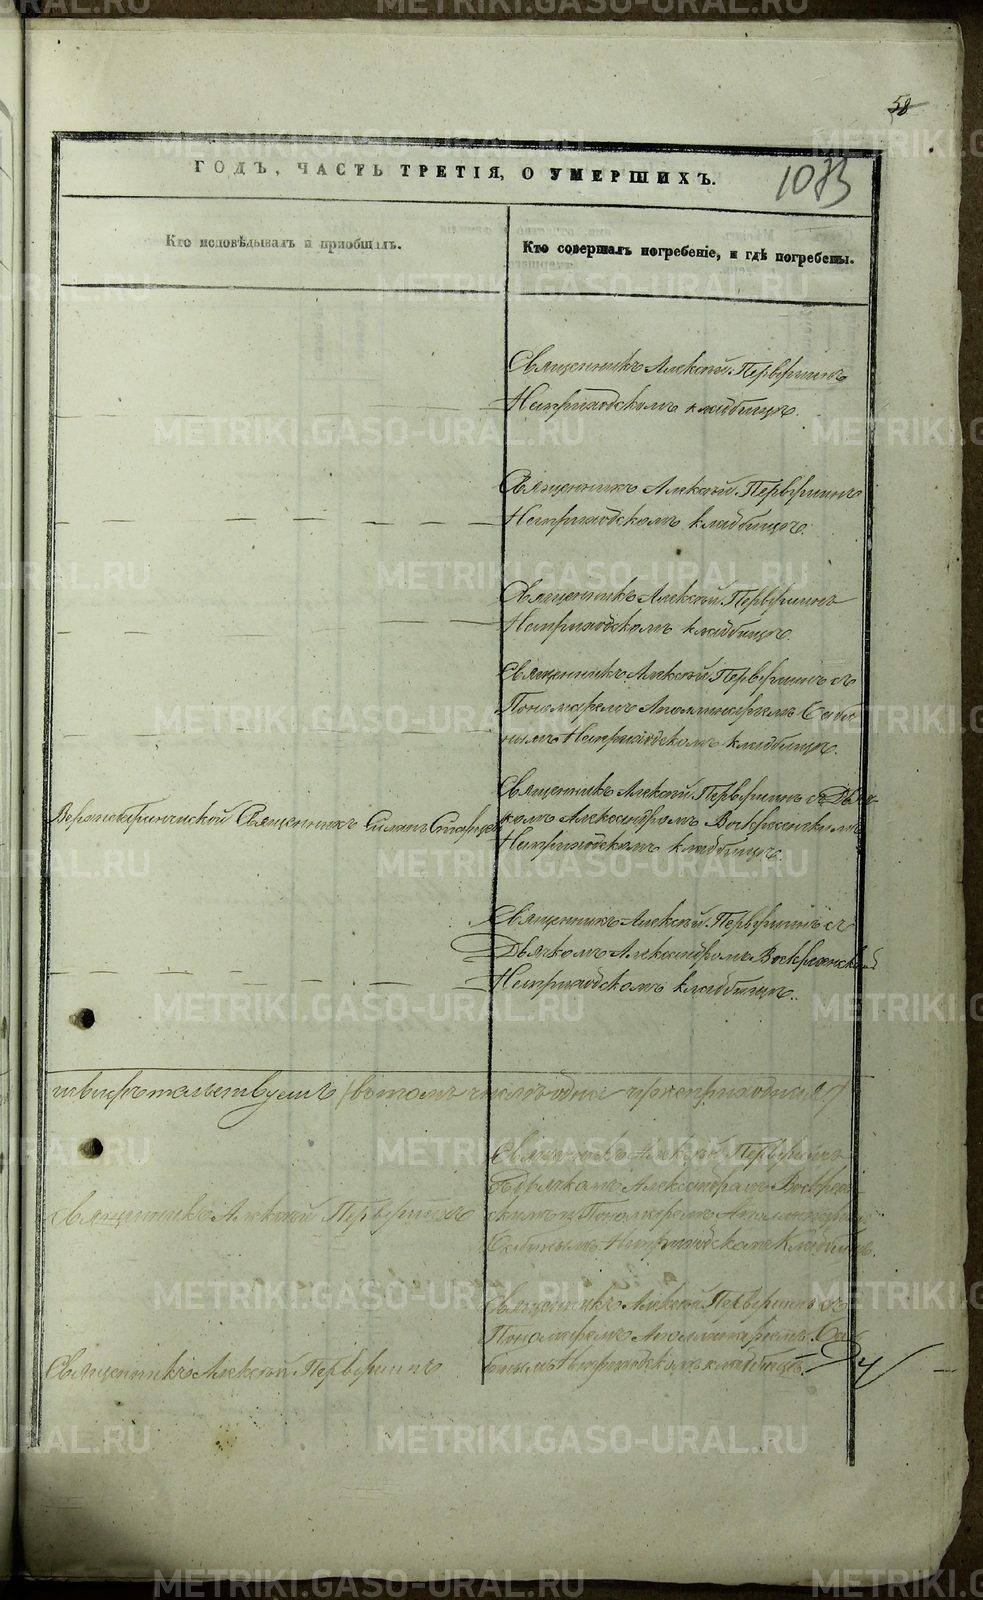 58
1073
ГОДЪ, ЧАСТЬ ТРЕТІЯ, О УМЕРШИХЪ.
Кто исповѣдывалъ и пріобщалъ.
Кто совершалъ погребеніе, и гдѣ погребены.
Священникъ Алексѣй Первушинъ
На приходскомъ кладбищѣ.
Священникъ Алексѣй Первушинъ
На приходскомъ кладбищѣ.
Священникъ Алексѣй Первушинъ
На приходскомъ кладбищѣ.
Священникъ Алексѣй Первушинъ съ
Пономаремъ Аполлинаріемъ Саби
нымъ На приходскомъ кладбищѣ.
Священникъ
Священникъ Алексѣй Первушинъ съ Дья-
комъ Александромъ Воскресенскимъ
На приходскомъ кладбищѣ.
Священникъ Алексѣй Первушинъ съ
Дьячкомъ Александромъ Воскресенским
На приходскомъ кладбищѣ.
свидѣтельствуемъ (въ томъ числѣ одна
Священникъ Алексѣй Первушинъ
Священникъ Алексѣй Первушинъ
съ дьячкомъ Александромъ Воскресен
скимъ и Пономаремъ Аполлинаріемъ
Сабинымъ На приходскомъ кладбищѣ.
Священникъ Алексѣй Первушинъ
Священникъ Алексѣй Первушинъ съ
Пономаремъ Аполлинаріемъ Са
бинымъ На приходскомъ кладбищѣ.
METRIKI.GASO-URAL.RU